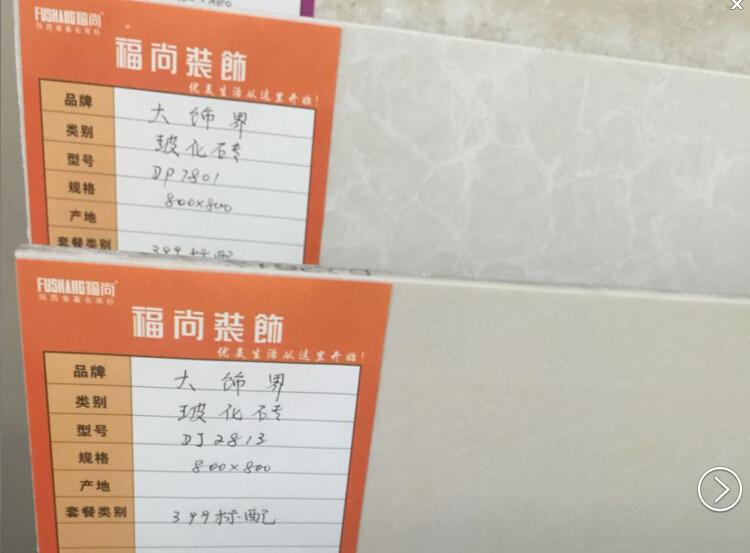 FUSHANG福尚
陕西省著名商标
福尚装飾
优美生活从这里开始!
品牌 大饰界
类别 玻化砖
型号 DP7801
规格 800×800
产地
套餐类别 399标配
FUSHANG福尚
陕西省著名商标
福尚装飾
优美生活从这里开始!
品牌 大饰界
类别 玻化砖
型号 DJ2813
规格 800×800
产地
套餐类别 399标配